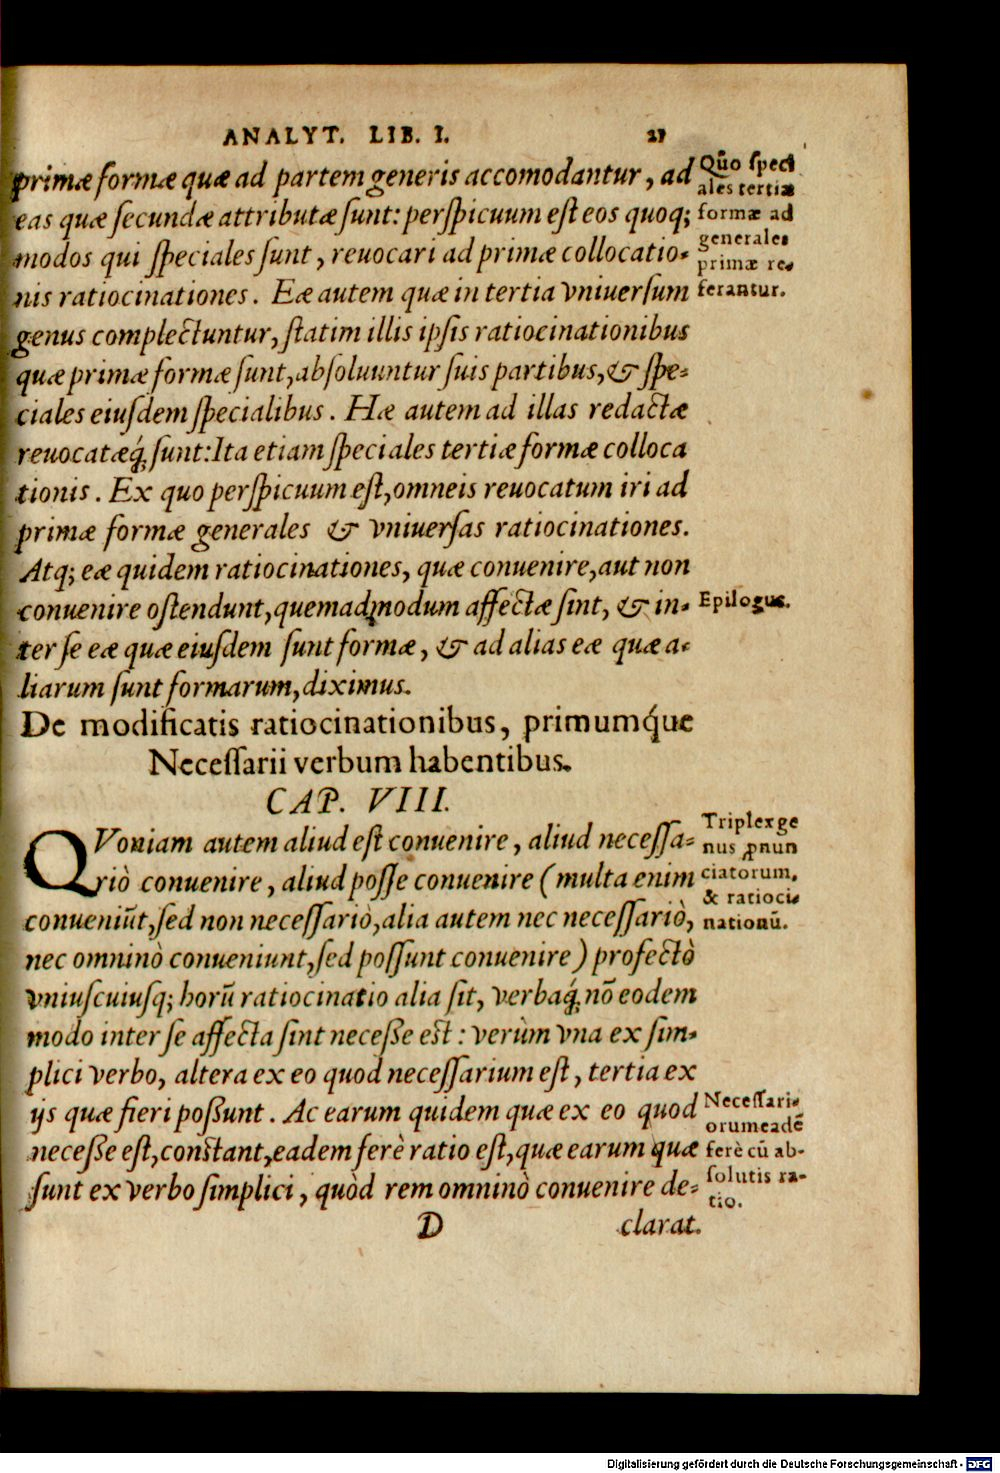 ANALYT. LIB. I. 21
primæ formæ quæ ad partem generis accomodantur, ad
eas quæ ſecundæ attributæ ſunt: perſpicuum eſt eos quoq;
modos qui ſpeciales ſunt, reuocari ad primæ collocatio-
nis ratiocinationes. Eæ autem quæ in tertia vniuerſum
genus complectuntur, ſtatim illis ipſis ratiocinationibus
quæ primæ formæ ſunt, abſoluuntur ſuis partibus, & ſpe-
ciales eiuſdem ſpecialibus. Hæ autem ad illas redactæ
reuocatæq́; ſunt: Ita etiam ſpeciales tertiæ formæ colloca
tionis. Ex quo perſpicuum eſt, omneis reuocatum iri ad
primæ formæ generales & vniuerſas ratiocinationes.
Atq; eæ quidem ratiocinationes, quæ conuenire, aut non
conuenire oſtendunt, quemadmodum affectæ ſint, & in-
ter ſe eæ quæ eiuſdem ſunt formæ, & ad alias eæ quæ a-
liarum ſunt formarum, diximus.
Quō ſpeci
ales tertiæ
formæ ad
generales
primæ re-
ferantur.
Epilogus.
De modificatis ratiocinationibus, primumq́ue
Neceſſarii verbum habentibus.
CAP. VIII.
QVoniam autem aliud eſt conuenire, aliud neceſſa-
riò conuenire, aliud poſſe conuenire (multa enim
conueniūt, ſed non neceſſariò, alia autem nec neceſſariò,
nec omninò conueniunt, ſed poſſunt conuenire) profectò
vniuſcuiuſq; horū ratiocinatio alia ſit, verbaq́; nō eodem
modo inter ſe affecta ſint neceße eſt: verùm vna ex ſim-
plici verbo, altera ex eo quod neceſſarium eſt, tertia ex
ijs quæ fieri poßunt. Ac earum quidem quæ ex eo quod
neceße eſt, constant, eadem ferè ratio eſt, quæ earum quæ
ſunt ex verbo ſimplici, quòd rem omninò conuenire de-
Triplex ge
nus ꝓnun
ciatorum,
& ratioci-
nationū.
Neceſſari-
orum eadē
ferè cū ab-
ſolutis ra-
tio.
D clarat.
Digitalisierung gefördert durch die Deutsche Forschungsgemeinschaft - DFG